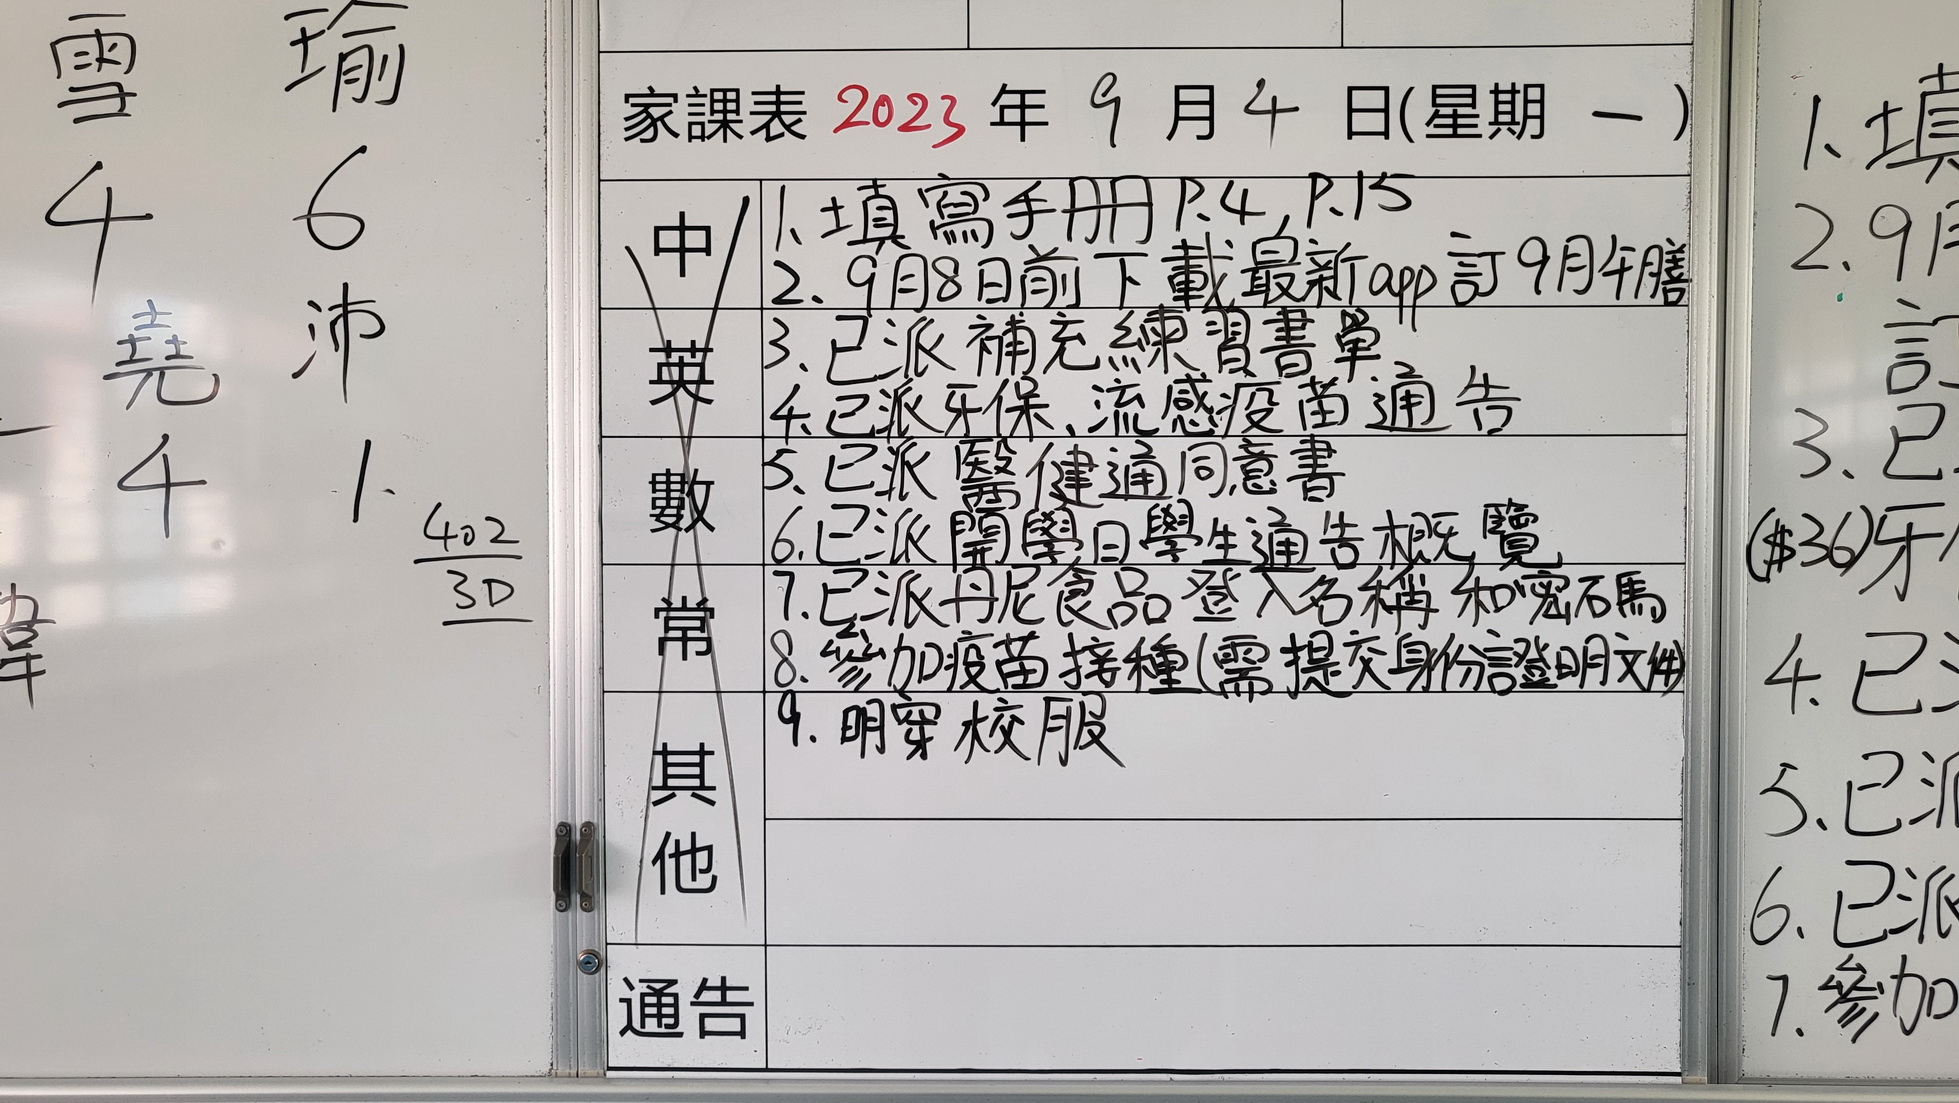 雪 瑜
4 6
堯 沛
4 1.
402
3D
家課表 2023 年 9 月 4 日(星期 一 )
中
英
數
常
其他
通告
1. 填寫手冊 P.4, P.15
2. 9月8日前下載最新app訂9月午膳
3. 已派補充練習書單
4. 已派牙保、流感疫苗通告
5. 已派醫健通同意書
6. 已派開學日學生通告概覽
7. 已派丹尼食品登入名稱和密碼
8. 參加疫苗接種(需提交身份證明文件)
9. 明穿校服
1. 填
2. 9月
訂
3. 已
($36)牙
4. 已
5. 已派
6. 已派
7. 參加